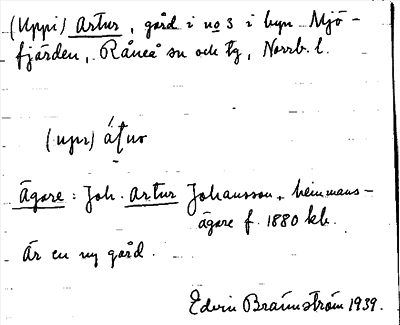 (Uppi) Artur, gård i no 3 i byn Mjö-
fjärden, Råneå sn och tg, Norrb. l.
(upi)
Ägare: Joh. Artur Johansson, hemmans-
ägare f. 1880 kb.
Är en ny gård.
Edvin Brännström 1939.